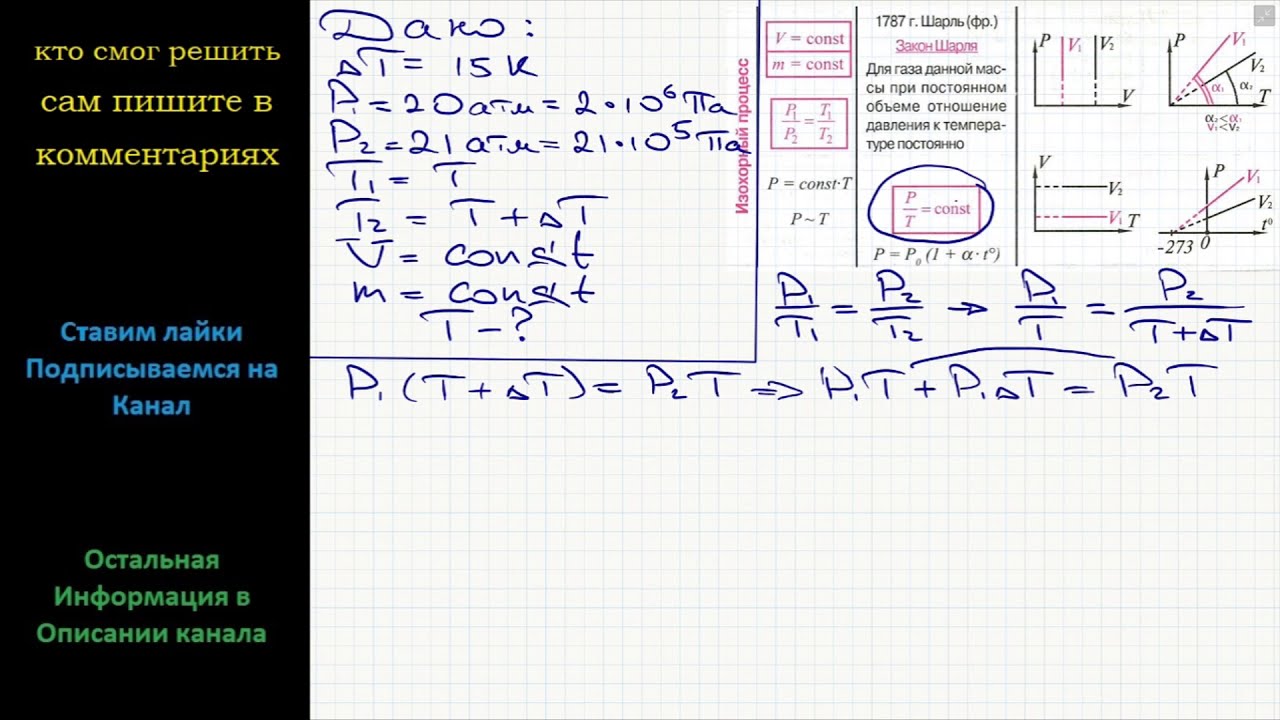 кто смог решить
сам пишите в
комментариях
Ставим лайки
Подписываемся на
Канал
Остальная
Информация в
Описании канала
Дано:
ΔT = 15 К
P₁ = 20 атм = 2·10⁶ Па
P₂ = 21 атм = 21·10⁵ Па
T₁ = T
T₂ = T + ΔT
V = const
m = const
T - ?
Изохорный процесс
V = const
m = const
P₁/P₂ = T₁/T₂
P = const·T
P ~ T
1787 г. Шарль (фр.)
Закон Шарля
Для газа данной мас-
сы при постоянном
объеме отношение
давления к темпера-
туре постоянно
P/T = const
P = P₀ (1 + α · t°)
P V₁ V₂
V
P V₁
V₂
α₁ α₂ T
α₂<α₁
V₁<V₂
V
V₂
V₁ T
P V₁
V₂
-273 0 t⁰
P₁/T₁ = P₂/T₂ → P₁/T = P₂/(T + ΔT)
P₁ (T + ΔT) = P₂ T ⇒ P₁T + P₁ΔT = P₂T